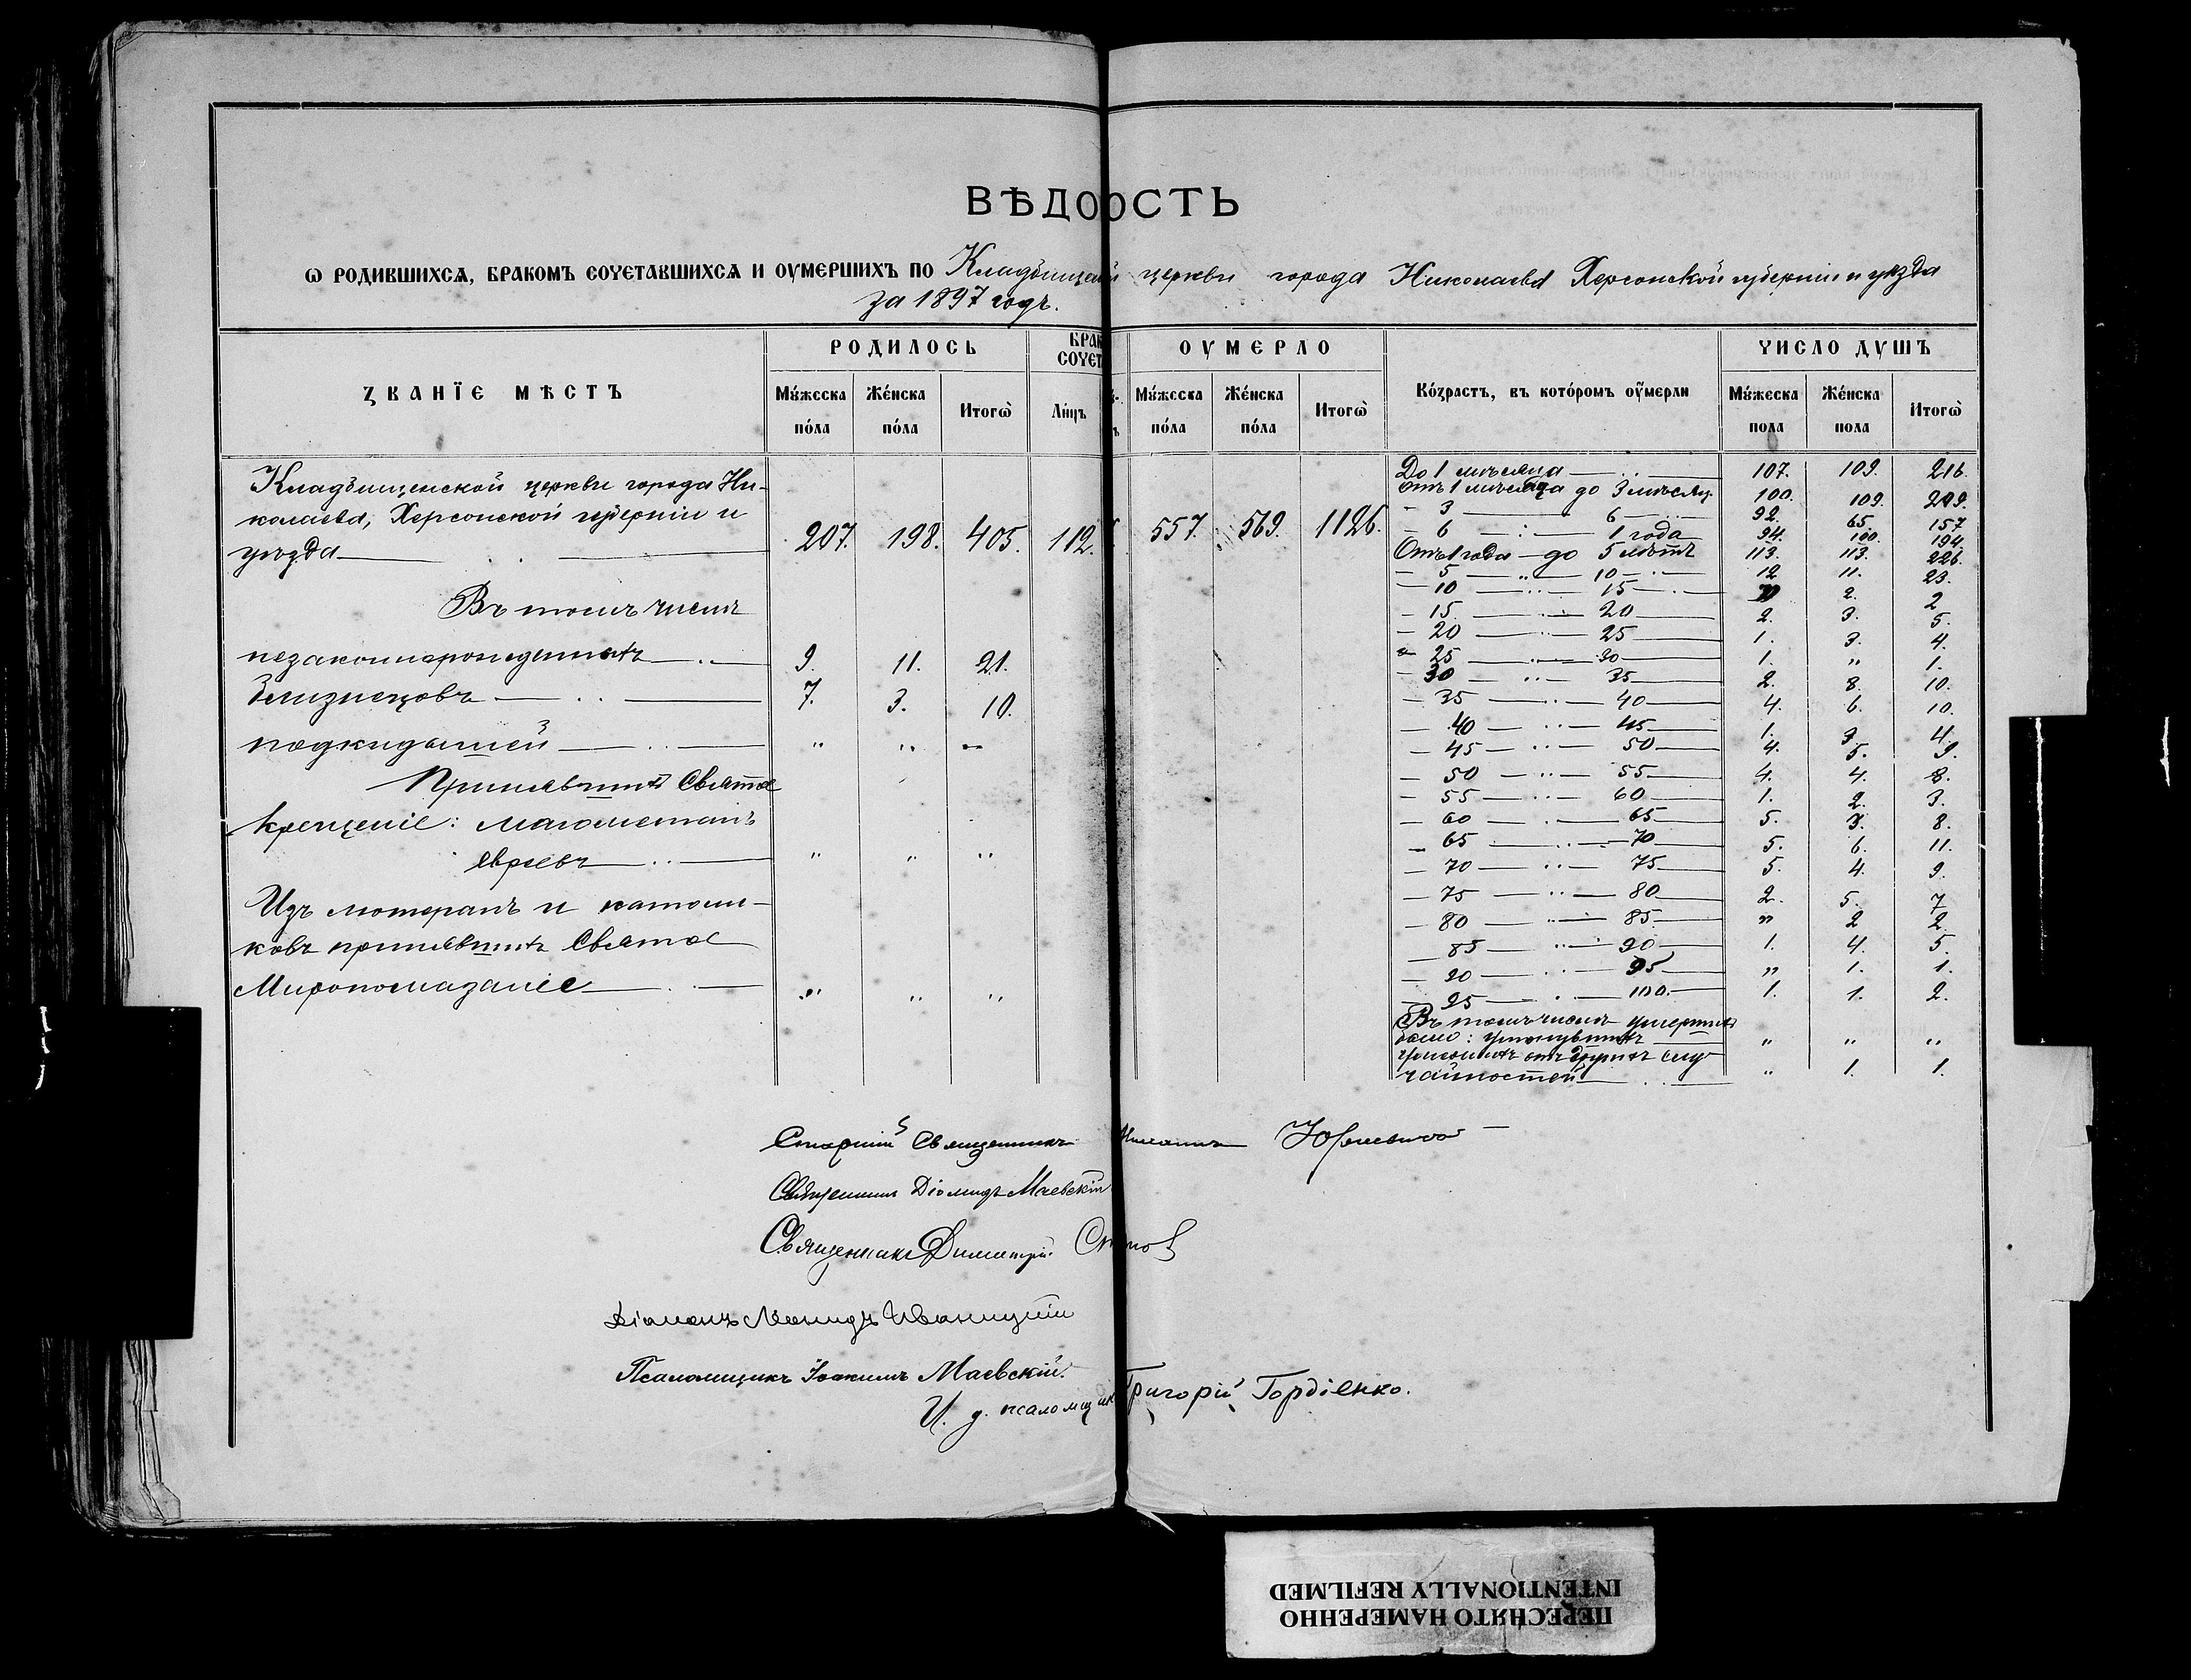 ВѢДО ОСТЬ
Ѡ РОДИВШИХСѦ, БРАКОМЪ СОЧЕТАВШИХСѦ И ОУМЕРШИХЪ ПО Кладбищен церкви города Николаева Херсонской губерніи и уѣзда
за 1897 годъ.
ЗВАНЇЕ МѢСТЪ
РОДИЛОСЬ
БРАК
СОЧЕТ
ОУМЕРЛО
Во́зрастъ, въ кото́ромъ оу҆́мерли
ЧИСЛО ДУШЪ
Му́жеска по́ла
Же́нска по́ла
Итогѡ̀
Ли́цъ
Му́жеска по́ла
Же́нска по́ла
Итогѡ̀
Му́жеска пола
Же́нска пола
Итогѡ̀
Кладбищенской церкви города Ни-
колаева, Херсонской губерніи и
уѣзда 207. 198. 405. 112. 557. 569. 1126.
Въ томъ числѣ
незаконнорожденныхъ 9. 11. 21.
близнецовъ 7. 3. 10.
подкидышей " " "
Принявшихъ Святое
Крещеніе: магометанъ
евреевъ " " "
Изъ лютеранъ и католи-
ковъ принявшихъ Святое
Мѵропомазаніе " " "
До 1 мѣсяца 107. 109. 216.
Отъ 1 мѣсяца до 3 мѣсяц. 100. 109. 209.
- 3 - 6 92. 65. 157
- 6 - 1 года 94. 100. 194.
Отъ 1 года до 5 лѣтъ 113. 113. 226.
- 5 - " - 10 12 11. 23.
- 10 - " - 15 " 2. 2
- 15 - " - 20 2. 3. 5.
- 20 - " - 25 1. 3. 4.
- 25 - " - 30 1. " 1.
- 30 - " - 35 2. 8. 10.
- 35 - " - 40 4. 6. 10.
- 40 - " - 45 1. 3 4.
- 45 - " - 50 4. 5. 9.
- 50 - " - 55 4. 4. 8.
- 55 - " - 60 1. 2. 3.
- 60 - " - 65 5. 3. 8.
- 65 - " - 70 5. 6. 11.
- 70 - " - 75 5. 4. 9.
- 75 - " - 80 2. 5. 7
- 80 - " - 85 " 2 2.
- 85 - " - 90 1. 4. 5.
- 90 - " - 95 " 1. 1.
- 95 - " - 100. 1. 1. 2.
Въ томъ числѣ умершихъ
было: утонувшихъ " " "
умершихъ отъ другихъ слу-
чайностей " 1. 1.
Старшій Священникъ
Священникъ Діомидъ Маевскій
Священникъ Димитрій
Діаконъ Леонидъ Иваницкій
Псаломщикъ Іоакимъ Маевскій.
И. д. псаломщик Григорій Гордіенко.
ПЕРЕСНЯТО НАМЕРЕННО
INTENTIONALLY REFILMED